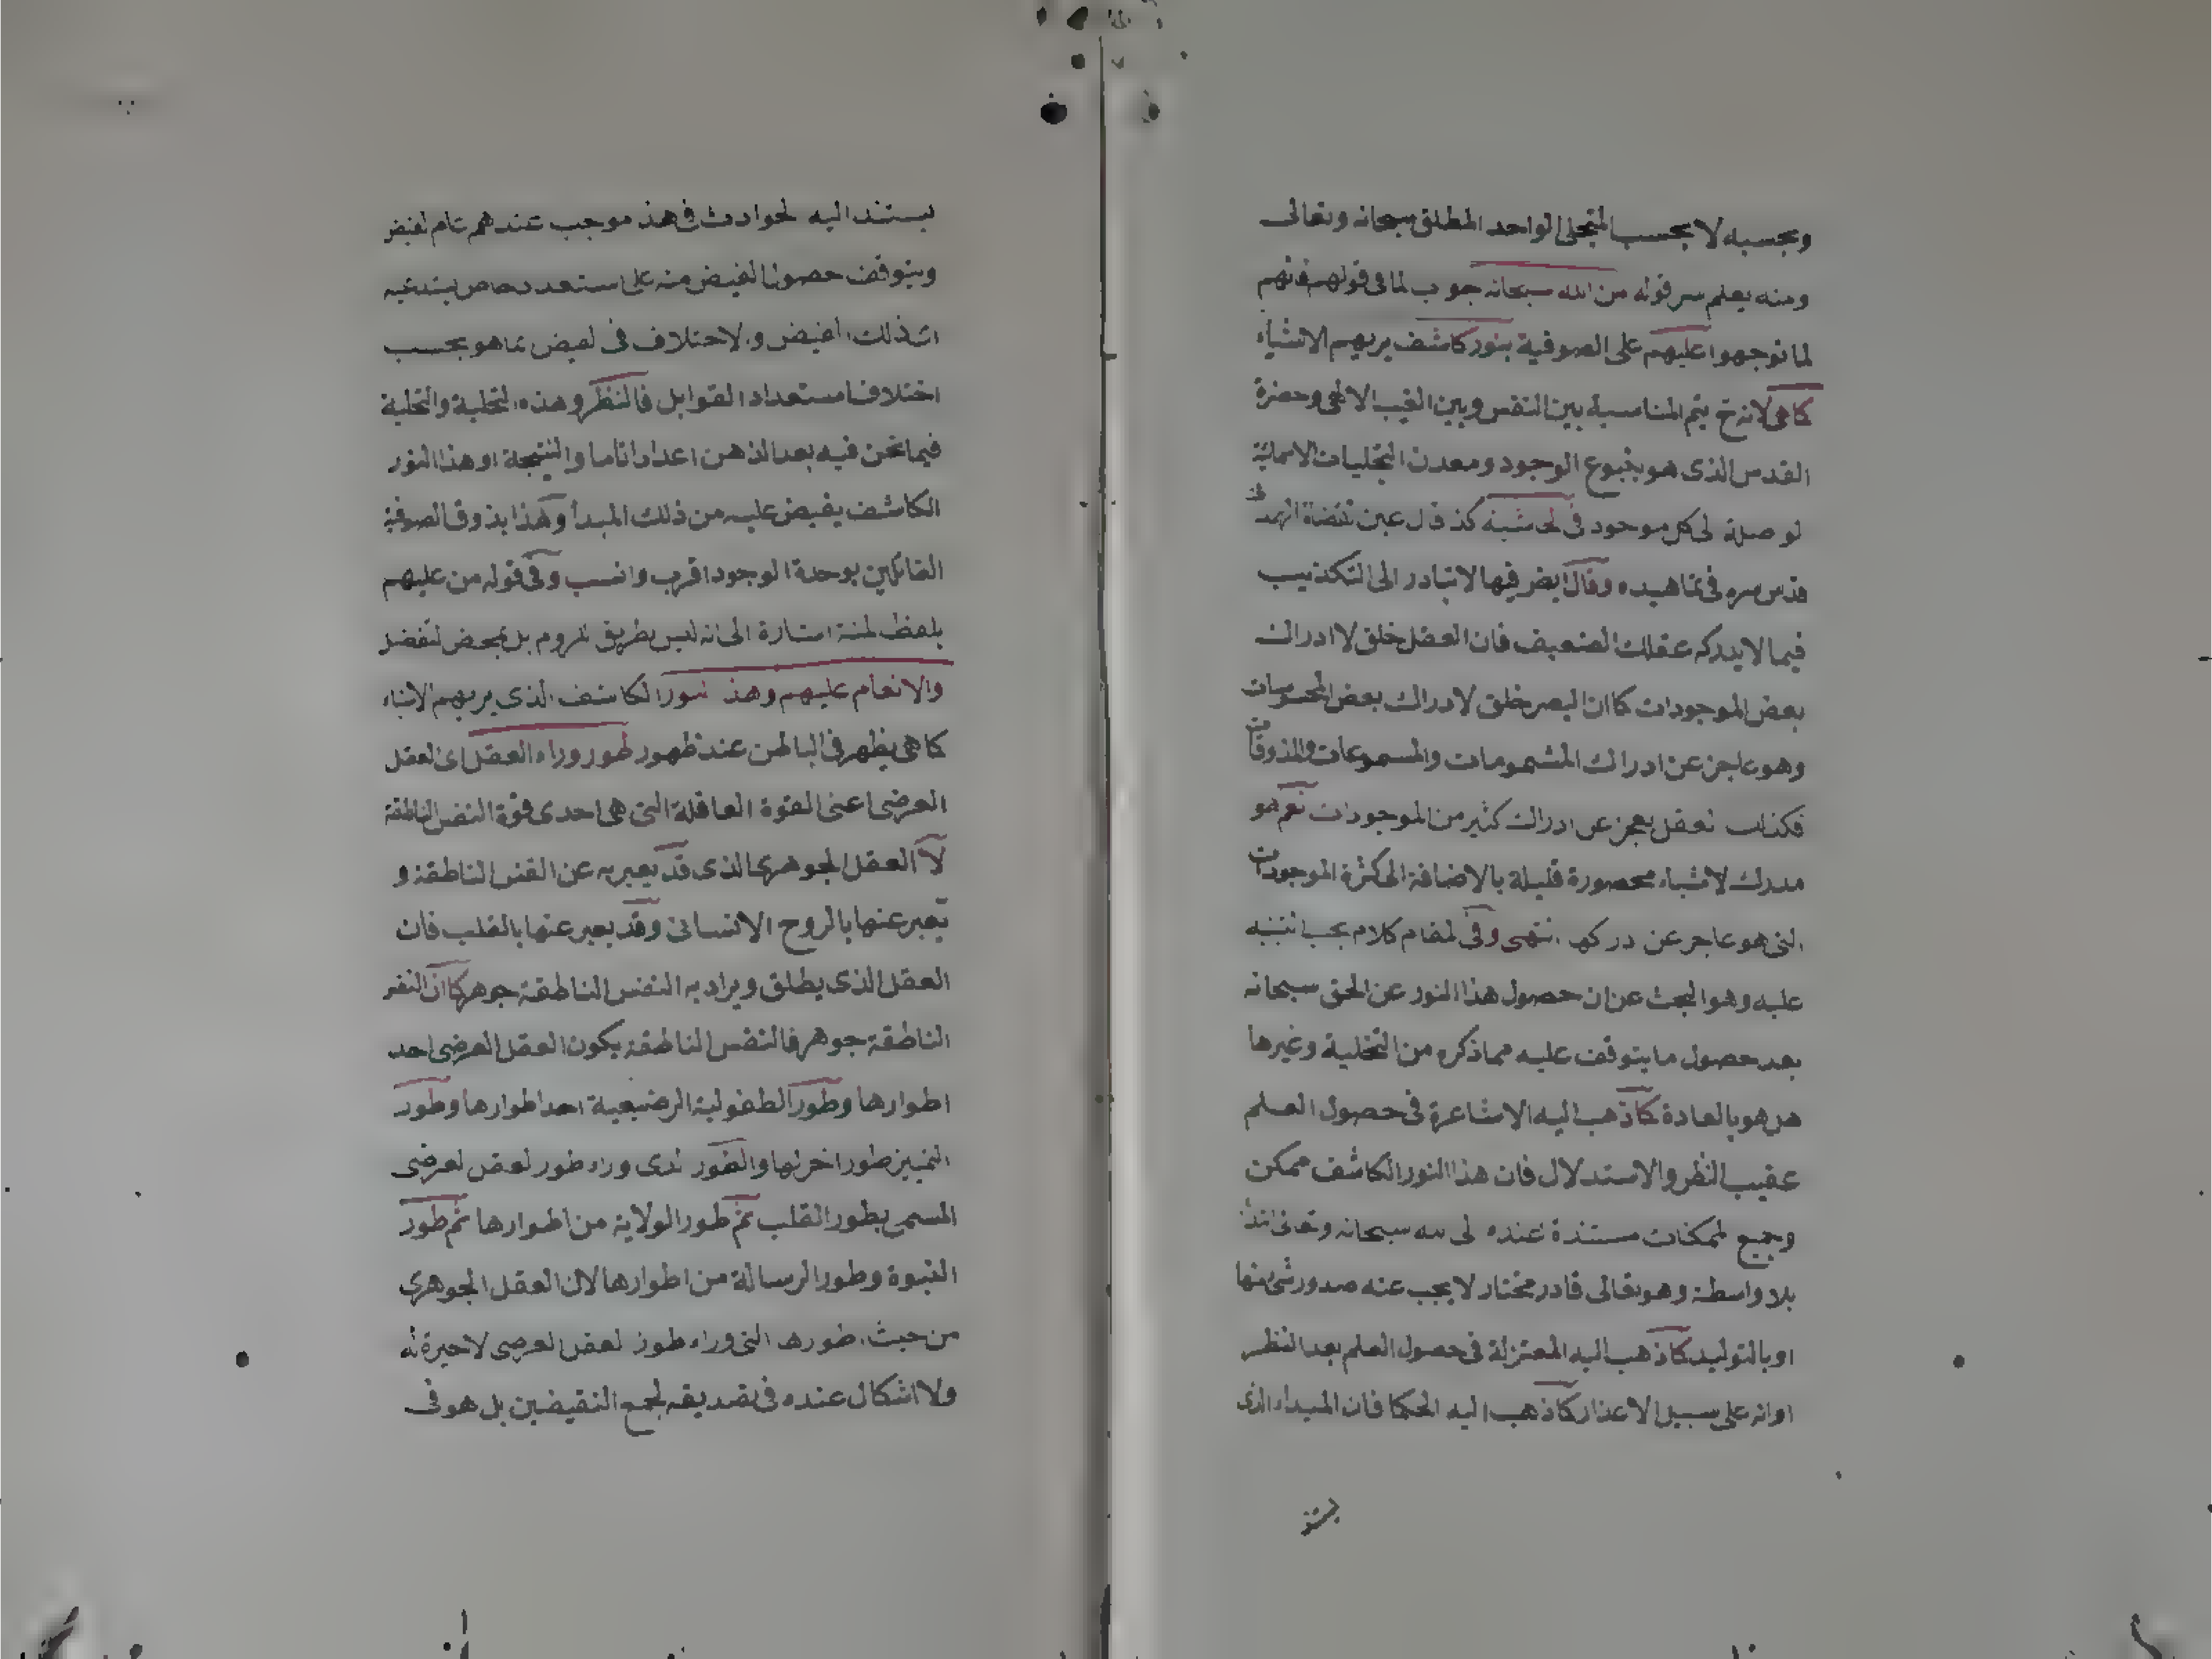 وبحسبه لا بحسب المتجلى الواحد المطلق سبحانه وتعالى
ومنه يعلم سر قوله من الله سبحانه جواب لما فى قولهم فانهم
لما توجهوا عليهم على الصوفية بنور كاشف يريهم الاشياء
كاهى لانه ح يتم المناسبة بين النفس وبين الغيب الالهى وحضرة
القدس الذى هو ينبوع الوجود ومعدن التجليات الاسمائية
لو صلة لى كل موجود فى كذ قال عين قضاة
قدس سره فى تماهيده وقال ايضر فيها لا تبادر الى التكذيب
فيما لا يدركه عقلك الضعيف فان العقل خلق لا ادراك
بعض الموجودات كاان البصر خلق لادراك بعض المحسوسات
وهو عاجز عن ادراك المشمومات والمسموعات والمذوقات
فكذلك لعقل يعجز عن ادراك كثير من الموجودات نعم هو
مدرك لاشياء محصورة قليلة بالاضافة الى كثرة الموجودات
التى هو عاجر عن دركها انتهى وفى لمقام كلام يجب التنبه
عليه وهو البحث عن ان حصول هذا النور عن الحق سبحانه
بعد حصول ما يتوقف عليه مماذكره من التخلية وغيرها
هل هو بالعادة كاذهب اليه الاشاعرة فى حصول العلم
عقيب النظر والاستدلال فان هذا النور الكاشف ممكن
وجميع لممكنات مستندة عنده لى لله سبحانه وتعالى
بلا واسطة وهو تعالى قادر مختار لا يجب عنه صدور شئ منها
او بالتوليد كاذهب اليه المعتزلة فى حصول العلم بعد النظر
اوانه على سبيل الاعذار كاذهب اليه الحكما فان المبداء الذى
يستند
يستند اليه لحوادث فى هذ موجب عندهم عام لفيض
ويتوقف حصول الفيض منه على ستعدد خاص يستدعيه
ذلك الفيض والاختلاف فى لفيض نماهو بحسب
اختلاف استعداد القوابل فالنظر وهذه التخلية والتحلية
فيما نحن فيه يعد الذهن اعدادا تاما والنتيجة او هذا النور
الكاشف يفيض عليه من ذلك المبدأ وهذا بذوق الصوفية
القائلين بوحدة الوجود اقرب وانسب وفى قوله من عليهم
بلفظ لمنة اشارة الى انه ليس بطريق للزوم بل بمحض لتفضل
والانعام عليهم وهذ لنور الكاشف الذى يريهم الاشياء
كاهى يظهر فى الباطن عند ظهور طور وراء العقل اى لعقل
العرضى اعنى القوة العاقلة التى هى احدى قوة النفس الناطقة
لا العقل الجوهرى الذى قد يعبر به عن النفس الناطقة و
يعبر عنها بالروح الانسانى وقد يعبر عنها بالقلب فان
العقل الذى يطلق ويراد به النفس الناطقة جوهر كاان النفر
الناطقة جوهر فالنفس الناطقة يكون العقل العرضى احد
اطوارها وطور الطفولية الرضيعية احد اطوارها وطور
التمييز طور اخر لها والطور لذى وراء طور لعقل لعرضى
المسمى بطور القلب ثم طور الولاية من اطوارها ثم طور
النبوة وطور الرسالة من اطوارها لان العقل الجوهرى
من حيث طورها التى وراء طور لعقل لعرضى لا حيرة له
ولا اشكال عنده فى تصديقه لجمع النقيضين بل هو فى